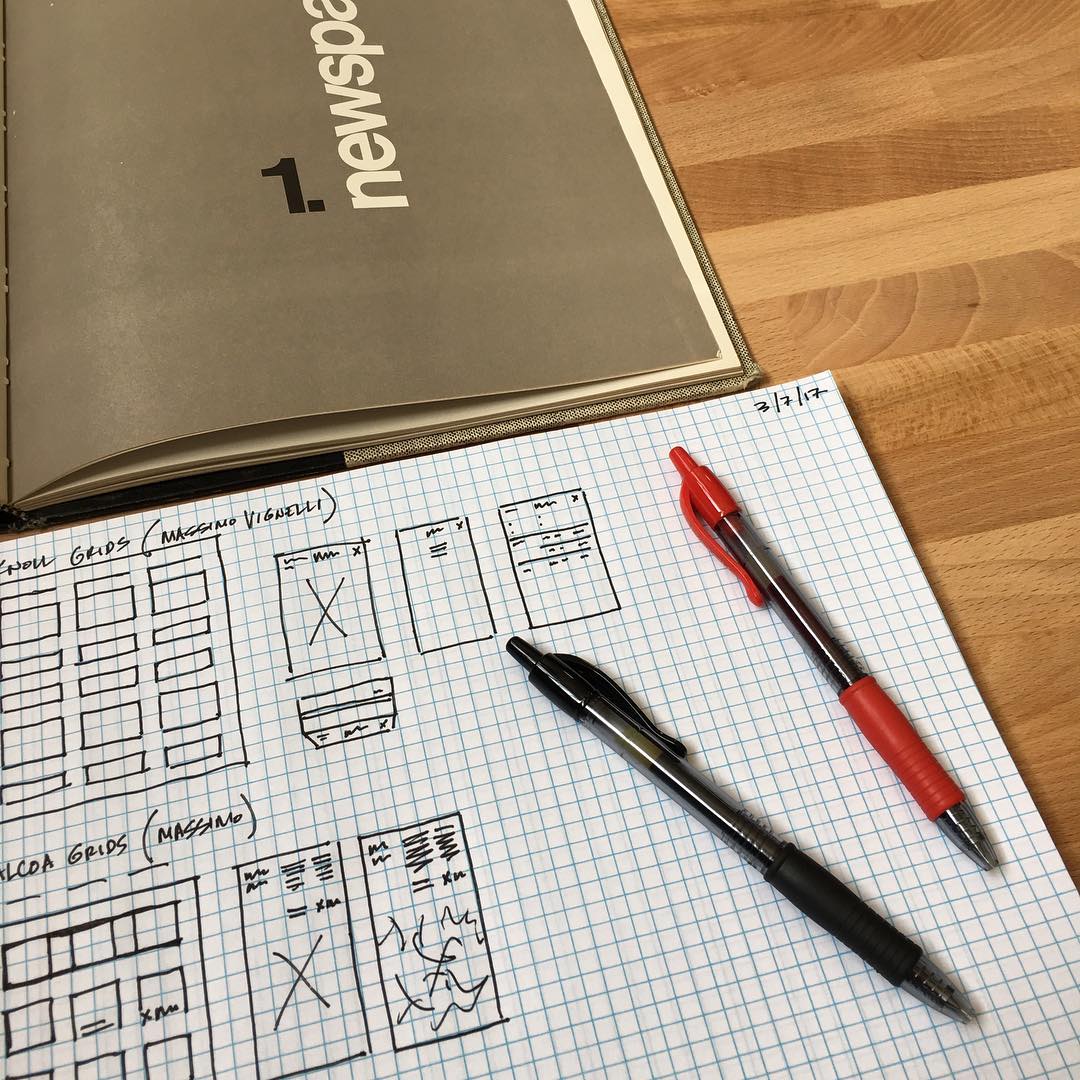 1.
newspa
3/7/17
KNOLL GRIDS (MASSIMO VIGNELLI)
ALCOA GRIDS (MASSIMO)